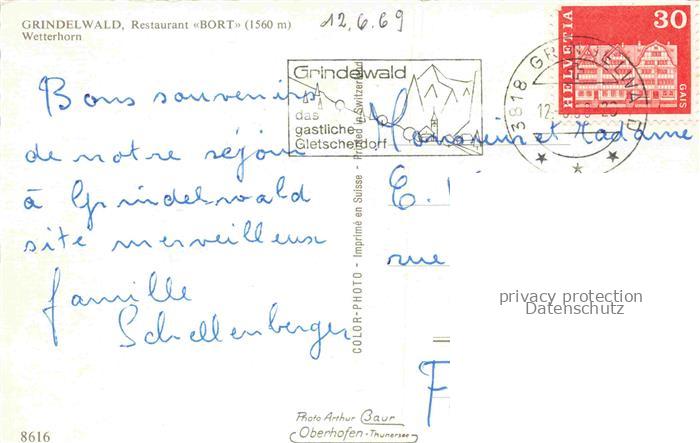 GRINDELWALD, Restaurant «BORT» (1560 m)
Wetterhorn
12.6.69
Bons souvenirs
de notre séjour
à Grindelwald
site merveilleux
famille
Schellenberger
Grindelwald
das
gastliche
Gletscherdorf
COLOR-PHOTO - Imprimé en Suisse - Printed in Switzerland
3818 GRINDELWALD
12.
HELVETIA
30
GAIS
Monsieur et Madame
E.
rue
F
privacy protection
Datenschutz
Photo Arthur Baur
Oberhofen-Thunersee
8616